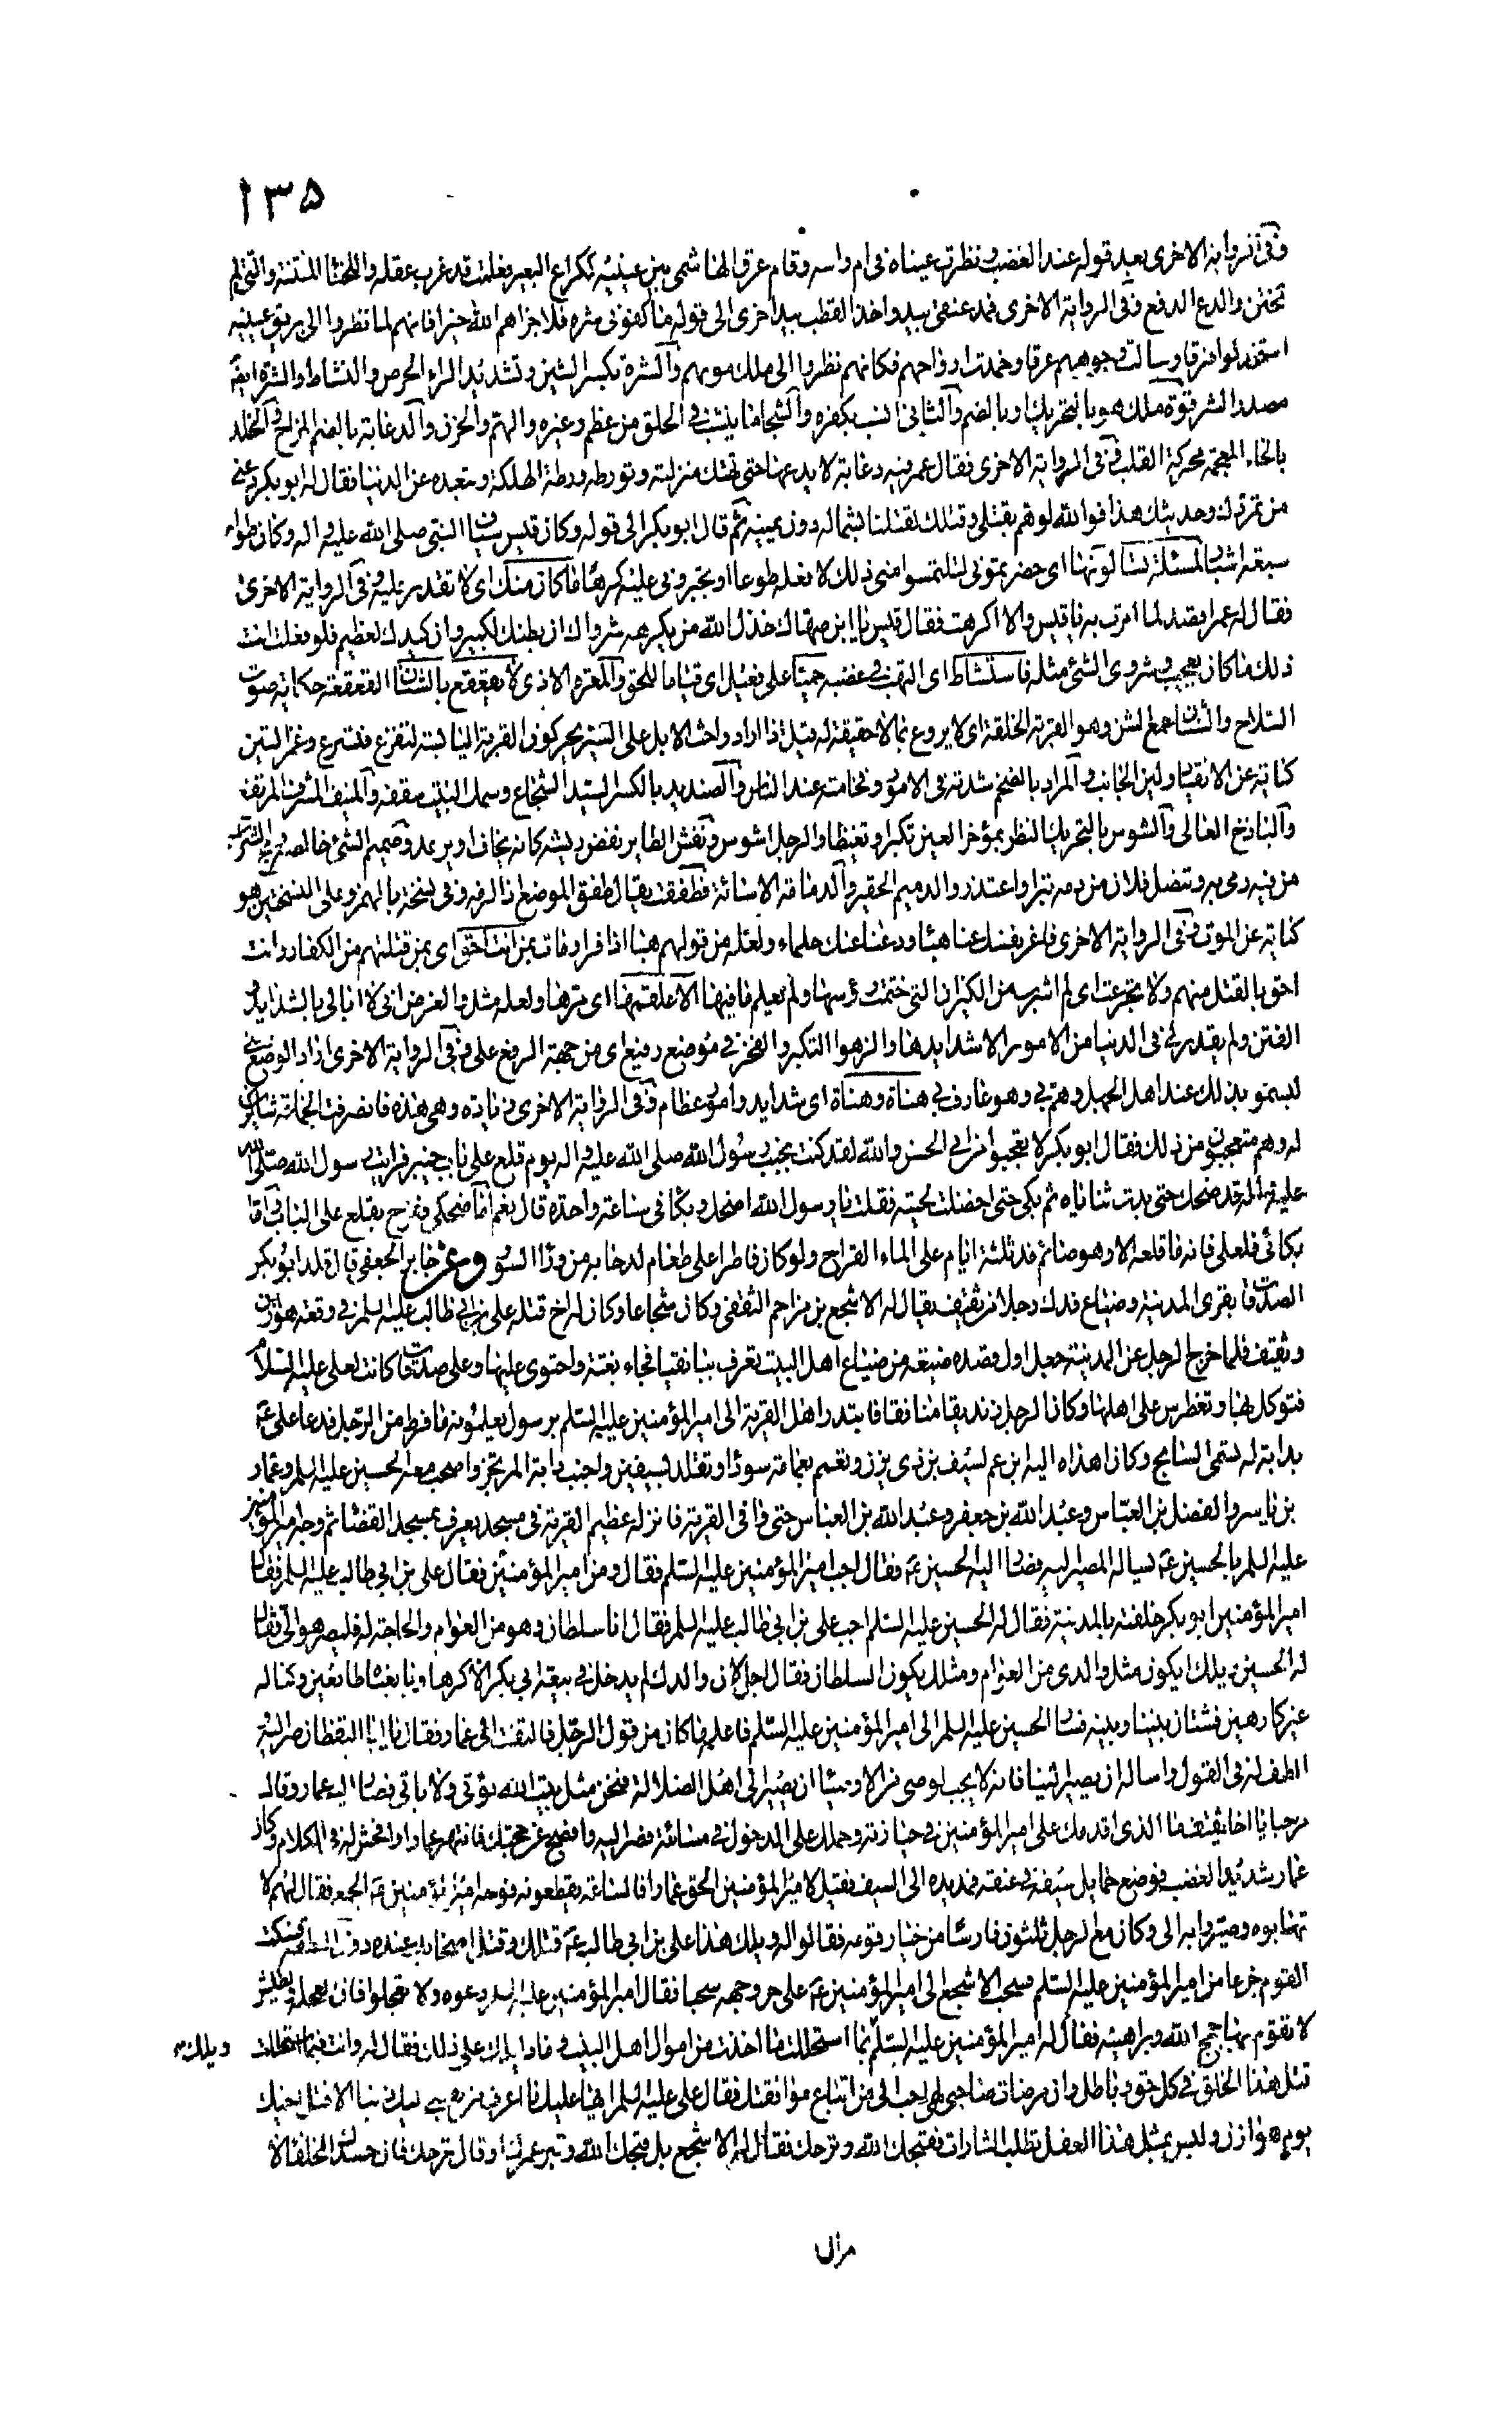 ١٣٥
وفي الرواية الاخرى بعد قوله عند الغضب ونظرت عيناه في ام راسه وقام عرق الهاشمي بين عينيه ككراع البعير فعلمت قد غرب عقله واللخنا المنتنة والتي لم
تختن والدع الدفع وفي الرواية الاخرى فمد عنقي بيد واخذ القطب بيد اخرى الى قوله ما كفوني شره فلا جزاهم الله خيرا فانهم لما نظروا الى بريق عينيه
استخذلوا فرقا وسالت وجوههم عرقا وخمدت ارواحهم فكانهم نظروا الى ملك موتهم والشرة بكسر الشين وتشديد الراء الحرص والنشاط والشره ايضا
مصدر الشر وقوة ملك هو بالتحريك او بالضم والثاني انسب بكفره والشجا ما ينشب في الحلق من عظم وغيره والهم والحزن والدعابة بالضم المزاح والخلد
بالخاء المعجمة محركة القلب وفي الرواية الاخرى فقال عمر فيه دعابة لا يدعها حتى تهتك منزلته وتورطه ورطة الهلكة وتبعده عن الدنيا فقال له ابو بكر دعني
من تمردك وحديثك هذا فوالله لو هم بقتلي وقتلك لقتلنا بشماله دون يمينه ثم قال ابو بكر الى قوله وكان قيس سياف النبي صلى الله عليه واله وكان طوله
سبعة اشبار المسئلة تسالونها اي حضرتموني لتلتمسوا مني ذلك لا تفعله طوعا او تجبروني عليه كرها فما كان منك اي لا تقدر عليه وفي الرواية الاخرى
فقال له عمر اقصد لما امرت به يا قيس والا اكرهت فقال قيس يا ابن صهاك خذل الله من يكرهه شرواك ان بطنك لكبير وان كيدك لعظيم فلو فعلت انت
ذلك ما كان بعجيب وشروى الشئ مثله فاستشاط اي التهب في غضبه
السلاح والشنان جمع الشن وهو القربة الخلقة اي لا يروع بما لا حقيقة له قيل اذا ارادوا حث الابل على السير يحركون القربة اليابسة لتفزع فتسرع وغمز التين
كناية عن الانقياد ولين الجانب والمراد بالضخم شدته في الامور وفخامته عند الناس والصنديد بالكسر السيد الشجاع وسمك البيت سقفه والمنيف المشرف المرتفع
والباذخ العالي والشوس بالتحريك النظر بمؤخر العين تكبرا وتغيظا والرجل اشوس ونفش الطاير نفض ريشه كانه يخاف او يرعد وصميم الشئ خالصه
وتنصل فلان من ذنبه تبرا واعتذر والدميم الحقير والدمامة الاسائة فطفقت يقال طفق الموضع اذا لزمه وفي نسخة بالهمز وعلى النسختين هو
كناية عن الموت وفي الرواية الاخرى
احق بالقتل منهم ولا تجرعت اي لم اشرب من الكيزان التي ختمت رؤسها ولم يعلم ما فيها الا علقمها اي مرها ولعله مثل والغرض اني لا ابالي بالشدايد و
الفتن ولم يقدر لي في الدنيا من الامور الا شدايدها والزهو التكبر والفخر في موضع رفيع اي من جهة الرفع على وفي الرواية الاخرى اراد الوضع مني
ليسمو بذلك عند اهل الجهل وهم بي وهو عارف بي هناة وهناة اي شدايد وامور عظام وفي الرواية الاخرى زيادة وهي هذه فانصرفت الجماعة شاكرين
له وهم متعجبون من ذلك فقال ابو بكر لا تعجبوا من ابي الحسن والله لقد كنت بجنب رسول الله صلى الله عليه واله يوم قلع علي باب خيبر فرايت رسول الله صلى الله
عليه واله قد ضحك حتى بدت ثناياه ثم بكى حتى اخضلت لحيته فقلت يا رسول الله اضحك وبكاء في ساعة واحدة قال نعم اما ضحكي ففرح بقلع علي الباب واما
بكائي فلعلي فانه ما قلعه الا وهو صائم مذ ثلثة ايام على الماء القراح ولو كان فاطرا على طعام لدحا به من وراء السور وعن جابر الجعفي قال قلد ابو بكر
الصدقات بقرى المدينة وضياع فدك رجلا من ثقيف يقال له الاشجع بن مزاحم الثقفي وكان شجاعا وكان له اخ قتله علي بن ابي طالب عليه السلم في وقعة هوازن
وثقيف فلما خرج الرجل عن المدينة جعل اول قصده ضيعة من ضياع اهل البيت تعرف ببانقيا فجاء بغتة واحتوى عليها وعلى صدقات كانت لعلي عليه السلام
فتوكل بها وتغطرس على اهلها وكان الرجل زنديقا منافقا فابتدر اهل القرية الى امير المؤمنين عليه السلم برسول يعلمونه ما فرط من الرجل فدعا علي ع
بدابة له تسمى السابح وكان اهداه اليه ابن عم لسيف بن ذي يزن وتعمم بعمامة سودا وتقلد بسيفين واجنب دابة المرتجز واصحب معه الحسين عليه السلم وعمار
بن ياسر والفضل بن العباس وعبد الله بن جعفر وعبد الله بن العباس حتى وافى القرية فانزله عظيم القرية في مسجد يعرف بمسجد القضا ثم وجه امير المؤمنين
عليه السلم بالحسين ع يساله المصير اليه فصار اليه الحسين ع فقال اجب امير المؤمنين عليه السلم فقال ومن امير المؤمنين فقال علي بن ابي طالب عليه السلم فقال
امير المؤمنين ابو بكر خلفته بالمدينة فقال له الحسين عليه السلم اجب علي بن ابي طالب عليه السلم فقال انا سلطان وهو من العوام والحاجة له فليصر هو الي فقال
له الحسين ويلك ايكون مثل والدي من العوام ومثلك يكون السلطان فقال اجل لان والدك لم يدخل في بيعة ابي بكر الا كرها وبايعناه طائعين وكنا له
غير كارهين فشتان بيننا وبينه فصار الحسين عليه السلم الى امير المؤمنين عليه السلم فاعلمه ما كان من قول الرجل فالتفت الى عمار فقال يا ابا اليقظان صر اليه و
الطف له في القول واساله ان يصير الينا فانه لا يجب لوصي من الاوصيا ان يصير الى اهل الضلالة فنحن مثل بيت الله يؤتى ولا ياتي فصار اليه عمار وقال
مرحبا يا اخا ثقيف ما الذي اقدمك على امير المؤمنين في حيازته وحملك على الدخول في مسائته فصر اليه وافصح عن حجتك فانتهر عمارا وافحش له في الكلام وكان
عمار شديد الغضب فوضع حمايل سيفه في عنقه فمد يده الى السيف فقيل لامير المؤمنين الحق عمارا فالساعة يقطعونه فوجه امير المؤمنين ع الجمع فقال لهم لا
تهابوه وصيروا به الي وكان مع الرجل ثلثون فارسا من خيار قومه فقالوا له ويلك هذا علي بن ابي طالب ع قتلك وقتل اصحابك عنده دون النطفة فسكت
القوم خوفا من امير المؤمنين عليه السلم فسحب الاشجع الى امير المؤمنين ع على حر وجهه سحبا فقال امير المؤمنين عليه السلم دعوه ولا تعجلوا فان العجلة والطيش
لا تقوم بها حجج الله وبراهينه فقال له امير المؤمنين عليه السلم بما استحللت ما اخذت من اموال اهل البيت وما دليلك على ذلك فقال له وانت فبما استحللت
ويلك
قتل هذا الخلق في كل حق وباطل وان مرضاة صاحبي لهي احب الي من اتباع موافقتك فقال علي عليه السلم ايها عليك ما اعرف من نفسي اليك ذنبا الا قتل اخيك
يوم هوازن وليس بمثل هذا الفعل تطلب الثارات فقبحك الله وترحك فقال له الاشجع بل قبحك الله وبتر عمرك او قال ترحك فان حسدك الخلفاء لا
يزال